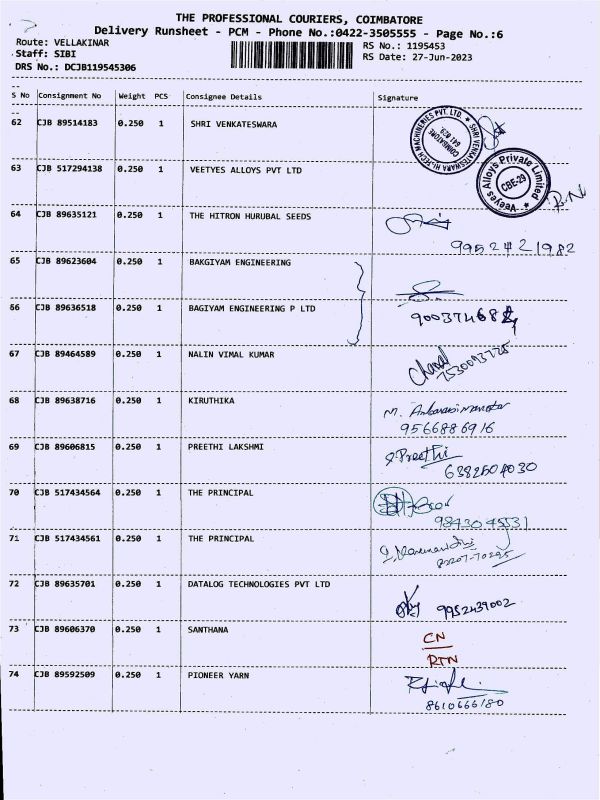 THE PROFESSIONAL COURIERS, COIMBATORE
Delivery Runsheet - PCM - Phone No.:0422-3505555 - Page No.:6
Route: VELLAKINAR RS No.: 1195453
Staff: SIBI RS Date: 27-Jun-2023
DRS No.: DCJB119545306
S No Consignment No Weight PCS Consignee Details Signature
62 CJB 89514183 0.250 1 SHRI VENKATESWARA
SHRI VENKATESWARA HI-TECH MACHINERIES PVT. LTD.
COIMBATORE
641 029
63 CJB 517294138 0.250 1 VEETYES ALLOYS PVT LTD
Veeyes Alloys Private Limited
CBE-29
64 CJB 89635121 0.250 1 THE HITRON HURUBAL SEEDS
9952421982
65 CJB 89623604 0.250 1 BAKGIYAM ENGINEERING
66 CJB 89636518 0.250 1 BAGIYAM ENGINEERING P LTD
67 CJB 89464589 0.250 1 NALIN VIMAL KUMAR
68 CJB 89638716 0.250 1 KIRUTHIKA
9566886916
69 CJB 89606815 0.250 1 PREETHI LAKSHMI
Preethi
6382604030
70 CJB 517434564 0.250 1 THE PRINCIPAL
9843045531
71 CJB 517434561 0.250 1 THE PRINCIPAL
72 CJB 89635701 0.250 1 DATALOG TECHNOLOGIES PVT LTD
9952439002
73 CJB 89606370 0.250 1 SANTHANA CN
RTN
74 CJB 89592509 0.250 1 PIONEER YARN
8610666180